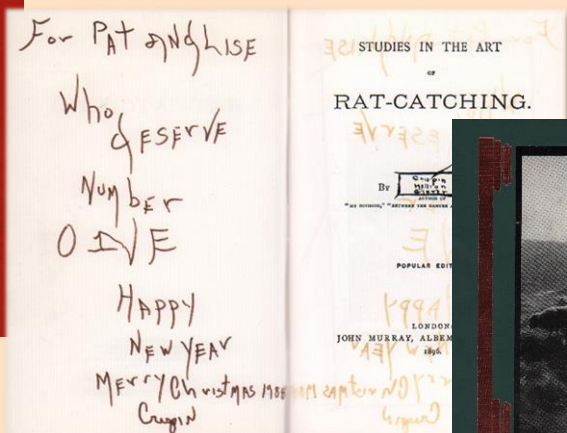 For PAT ANd LISE
Who
dESERVE
NumbEr
ONE
HAPPY
NEW YEAr
MErry Christmas 198
Crispin
STUDIES IN THE ART
OF
RAT-CATCHING.
By
Crispin
Hellion
Glover
AUTHOR OF
POPULAR EDIT
LONDON:
JOHN MURRAY, ALBEM
1896.